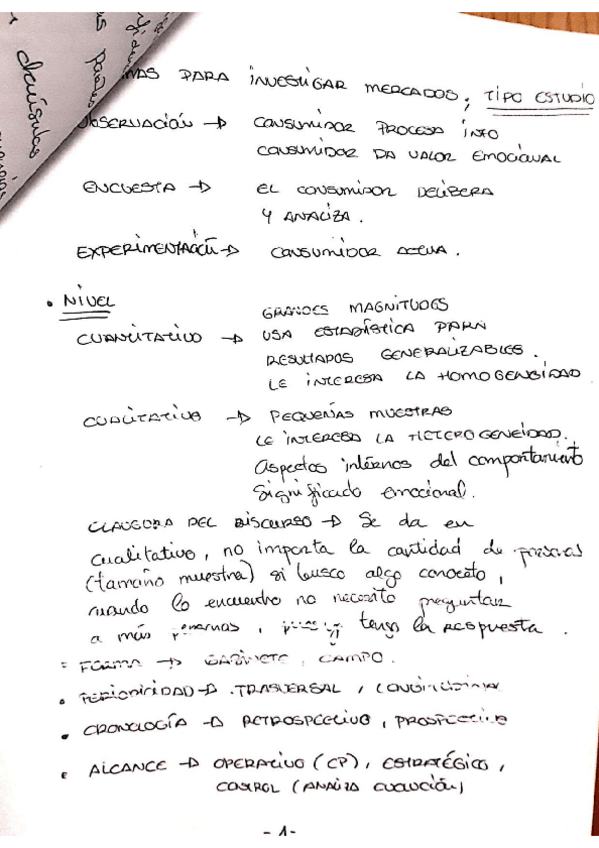 PARA INVESTIGAR MERCADOS, TIPO ESTUDIO
OBSERVACIÓN → CONSUMIDOR PROCESA INFO
CONSUMIDOR DA VALOR EMOCIONAL
ENCUESTA → EL CONSUMIDOR DELIBERA
Y ANALIZA.
EXPERIMENTACIÓN → CONSUMIDOR ACTUA.
• NIVEL
CUANTITATIVO → GRANDES MAGNITUDES
USA ESTADÍSTICA PARA
RESULTADOS GENERALIZABLES.
LE INTERESA LA HOMOGENEIDAD
CUALITATIVO → PEQUEÑAS MUESTRAS
LE INTERESA LA HETEROGENEIDAD.
Aspectos internos del comportamiento
Significado emocional.
CLAUSURA DEL DISCURSO → Se da en
cualitativo, no importa la cantidad de personas
(tamaño muestra) si busco algo concreto,
cuando lo encuentro no necesito preguntar
a más personas, tengo la respuesta.
FORMA → GABINETE, CAMPO.
• PERIODICIDAD → TRASVERSAL, LONGITUDINAL
• CRONOLOGÍA → RETROSPECTIVO, PROSPECTIVO
• ALCANCE → OPERATIVO (CP), ESTRATÉGICO,
CONTROL (ANALIZA EVOLUCIÓN)
- 1 -
cláusulas